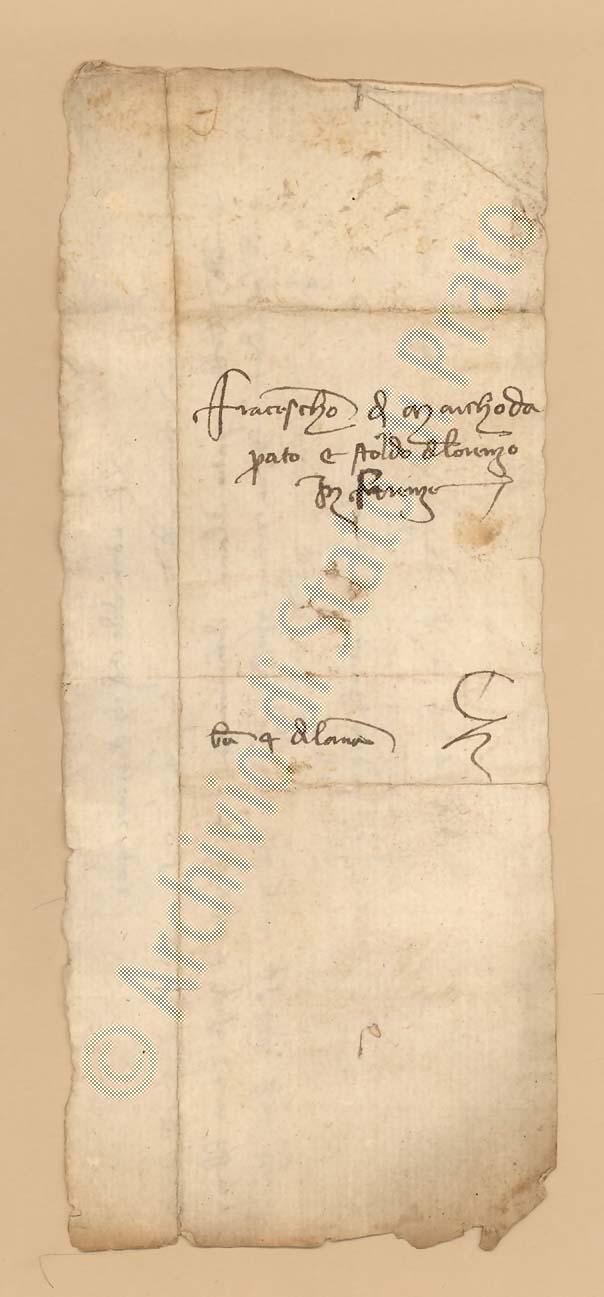 Francescho di Marcho da
Prato e Stoldo di Lorenzo
In Firenze
© Archivio di Stato di Prato